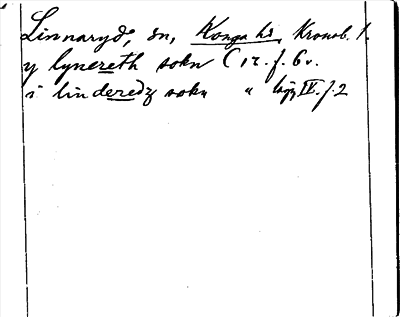 Linnaryd, sn, Konga hd, Kronob. l.
y lynereth sokn (12. f. 6 v.
i linderedz sokn " IV. f. 2